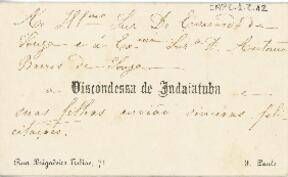 Ao Illmo Snr Dr
Souza e á Exma Snra D. Antonia
Barros de Souza
a Viscondessa de Indaiatuba e
suas filhas enviam sinceras feli-
citações.
Rua Brigadeiro Tobias, 71 S. Paulo